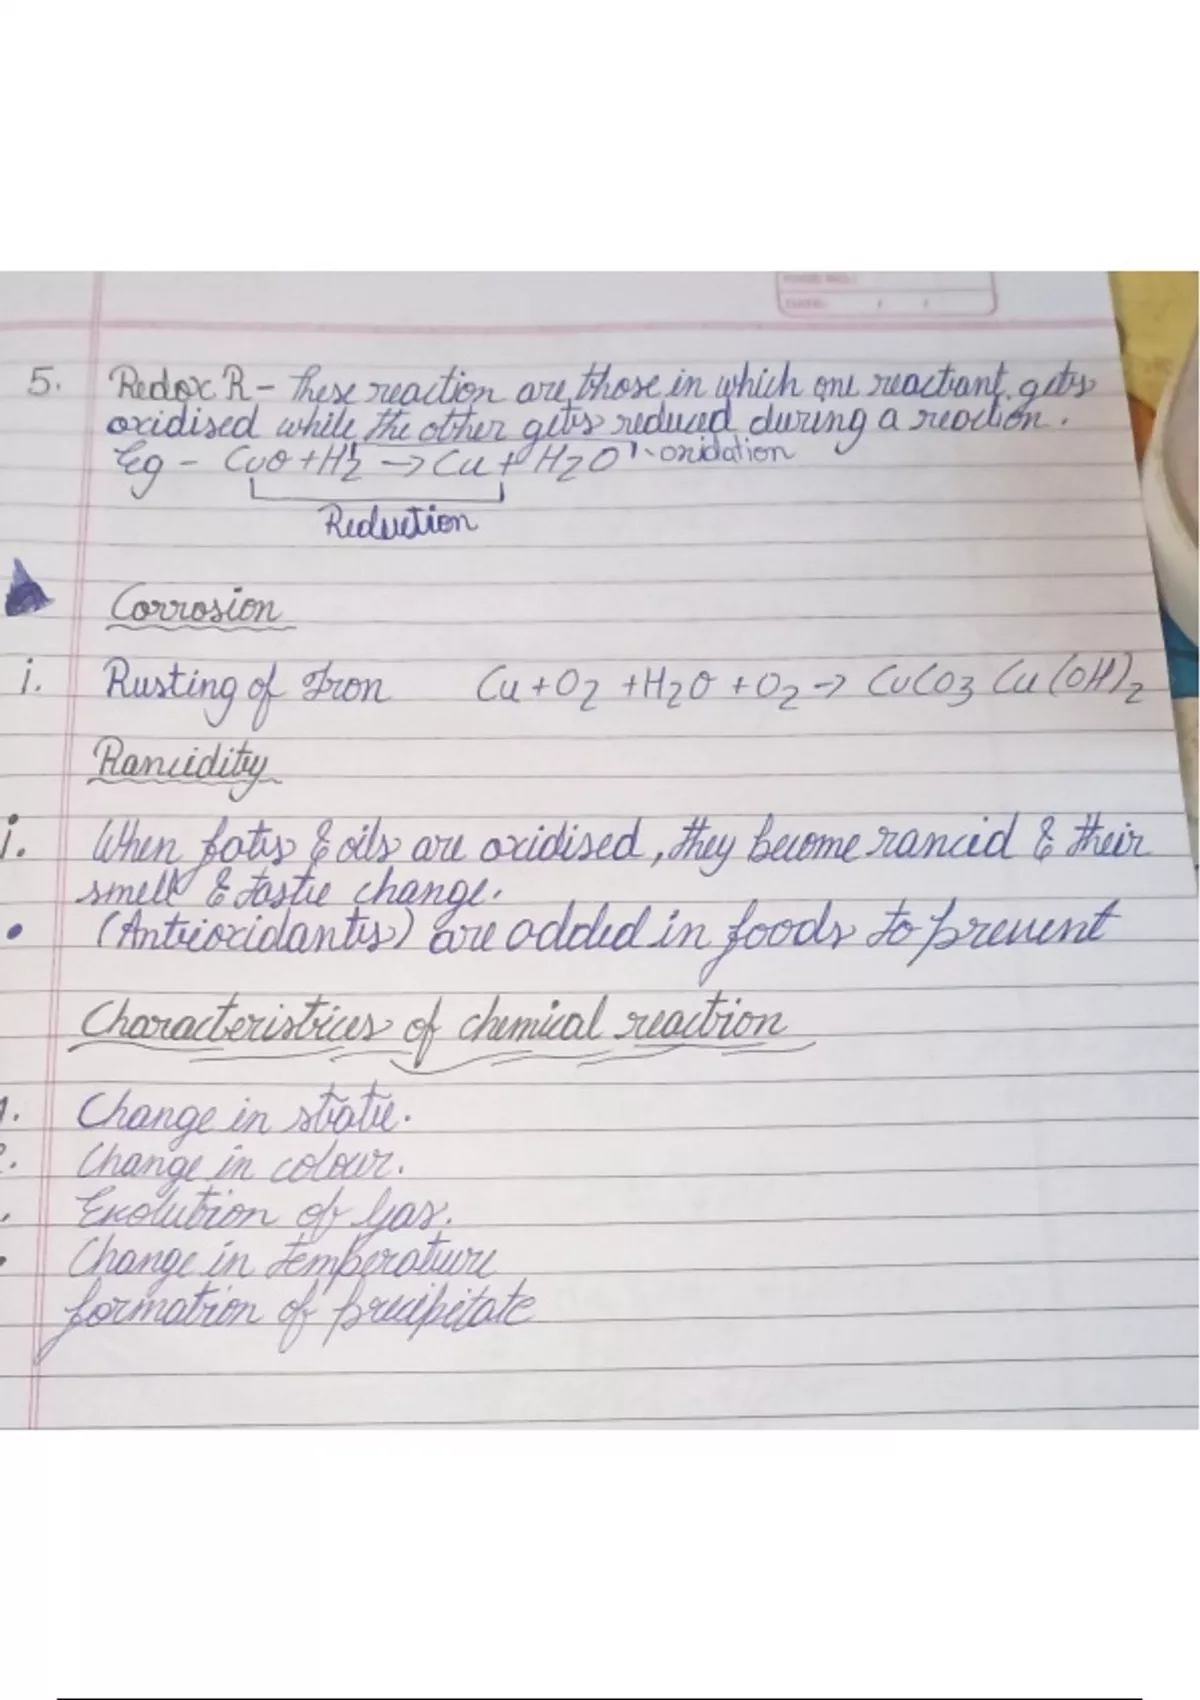 PAGE NO.:
DATE: / /
5. Redox R - These reaction are those in which one reactant gets
oxidised while the other gets reduced during a reaction.
Eg - CuO + H2 → Cu + H2O oxidation
Reduction
Corrosion
i. Rusting of Iron Cu + O2 + H2O + O2 → CuCO3 Cu(OH)2
Rancidity
i. When fats & oils are oxidised, they become rancid & their
smell & taste change.
• (Antioxidants) are added in foods to prevent
Characteristices of chemical reaction
1. Change in state.
2. Change in colour.
Evolution of gas.
Change in temperature
formation of precipitate